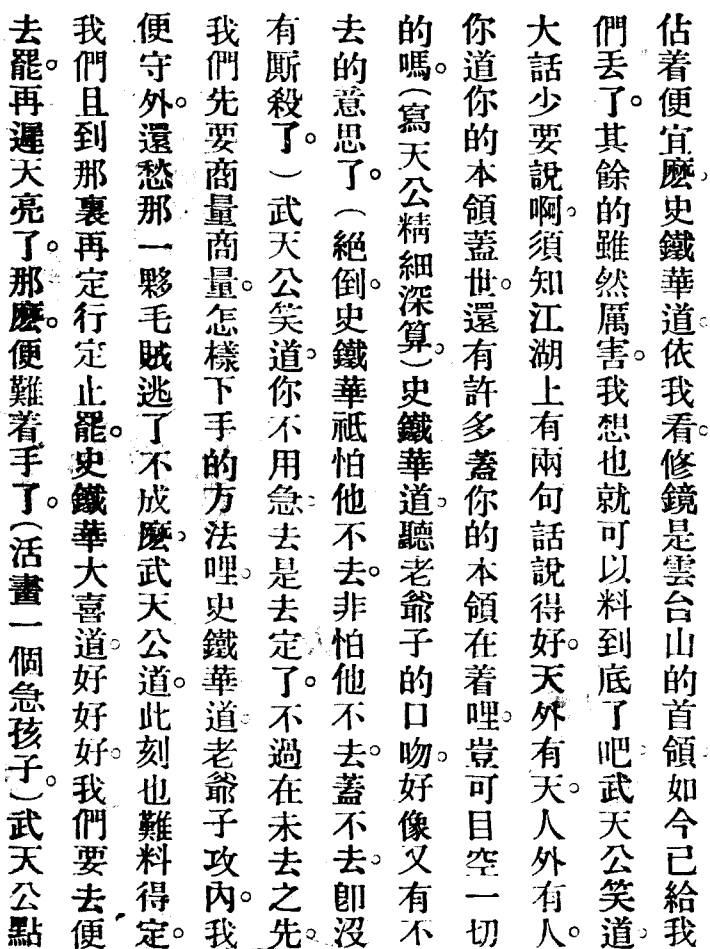 佔着便宜麽。史鐵華道。依我看。修鏡是雲台山的首領如今已給我
們丟了。其餘的雖然厲害。我想也就可以料到底了吧。武天公笑道。
大話少要說啊。須知江湖上有兩句話說得好。天外有天。人外有人。
你道你的本領蓋世。還有許多蓋你的本領在着哩。豈可目空一切
的嗎。(寫天公精細深算。)史鐵華道。聽老爺子的口吻。好像又有不
去的意思了。(絕倒。史鐵華祇怕他不去。非怕他不去。蓋不去。卽沒
有厮殺了。)武天公笑道。你不用急。去是去定了。不過在未去之先。
我們先要商量商量。怎樣下手的方法哩。史鐵華道。老爺子攻內。我
便守外。還愁那一夥毛賊逃了不成麽。武天公道。此刻也難料得定。
我們且到那裏再定行定止罷。史鐵華大喜道。好好好。我們要去便
去罷。再遲天亮了。那麽。便難着手了。(活畫一個急孩子。)武天公點